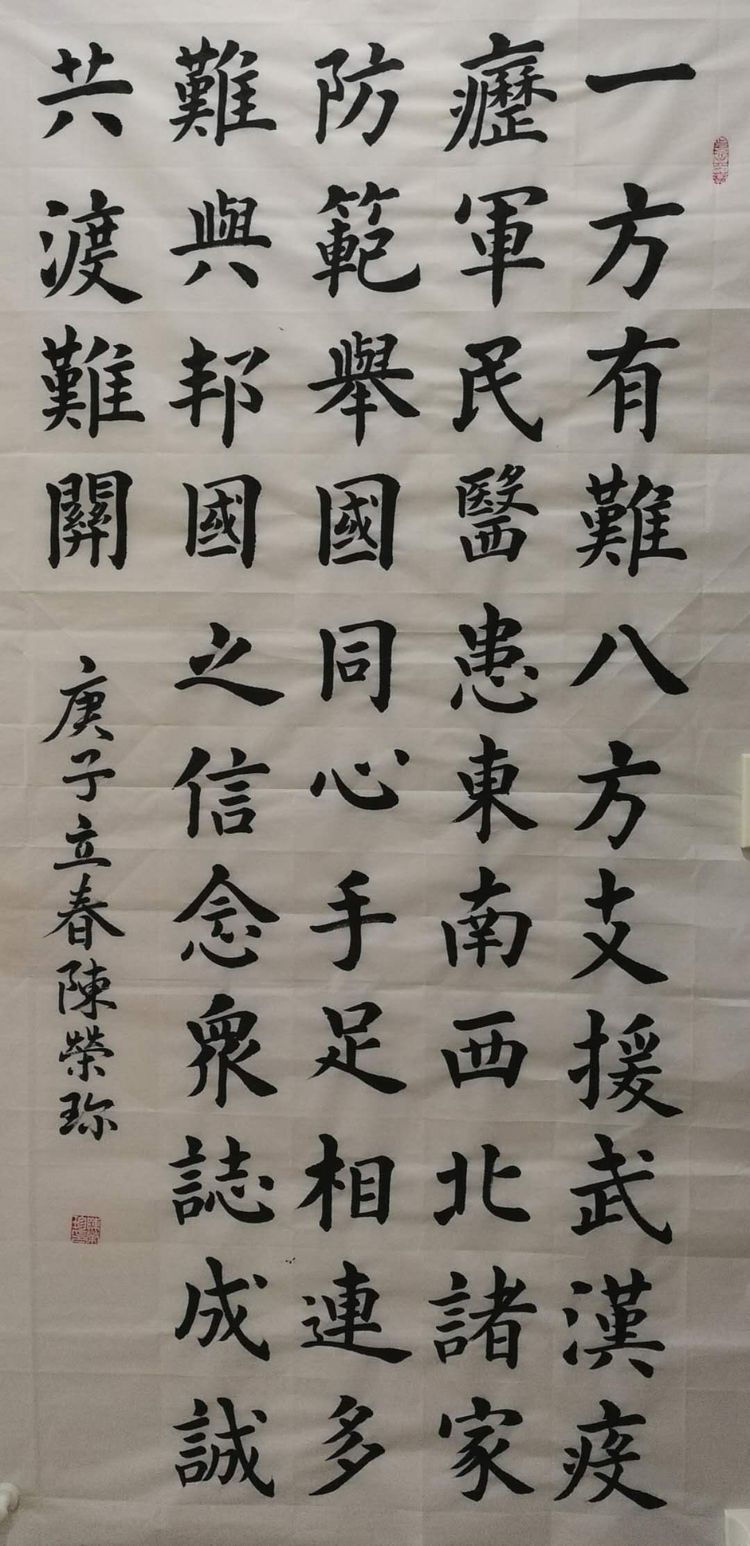 一方有難八方支援武漢疫
癧軍民醫患東南西北諸家
防範舉國同心手足相連多
難興邦國之信念衆誌成誠
共渡難關
庚子立春陳榮珎